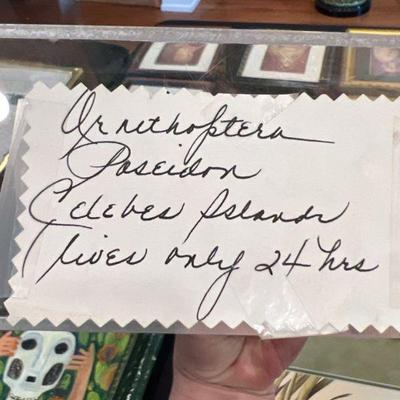 Ornithoptera
Poseidon
Celebes Islands
lives only 24 hrs